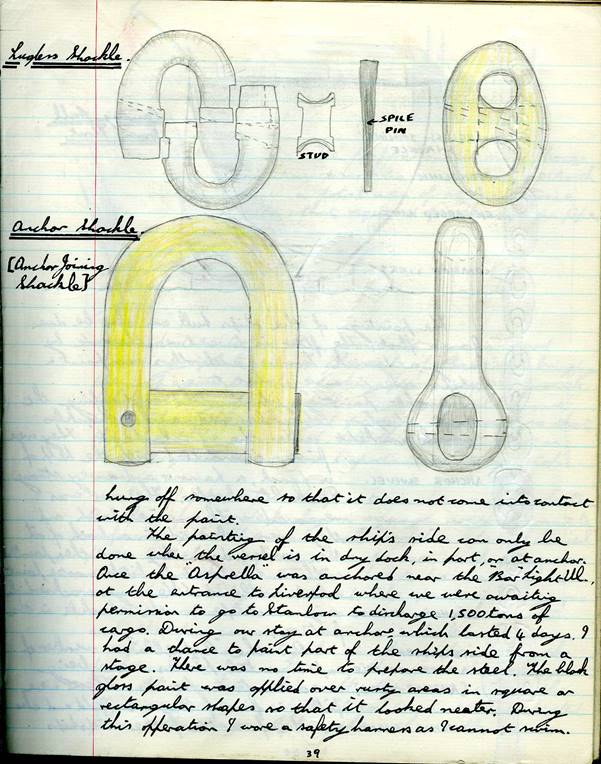 Lugless Shackle.
STUD
SPILE
PIN
Anchor Shackle.
[Anchor Joining
Shackle]
hung off somewhere so that it does not come into contact
with the paint.
The painting of the ship's side can only be
done when the vessel is in dry dock, in port, or at anchor.
Once the "Asprella" was anchored near the "Bar" Light-
at the entrance to Liverpool where we were awaiting
permission to go to Stanlow to discharge 1,500 tons of
cargo. During our stay at anchor, which lasted 4 days, I
had a chance to paint part of the ship's side from a
stage. There was no time to prepare the steel. The black
gloss paint was applied over rusty areas in square or
rectangular shapes so that it looked neater. During
this opperation I wore a safety harness as I cannot swim.
39